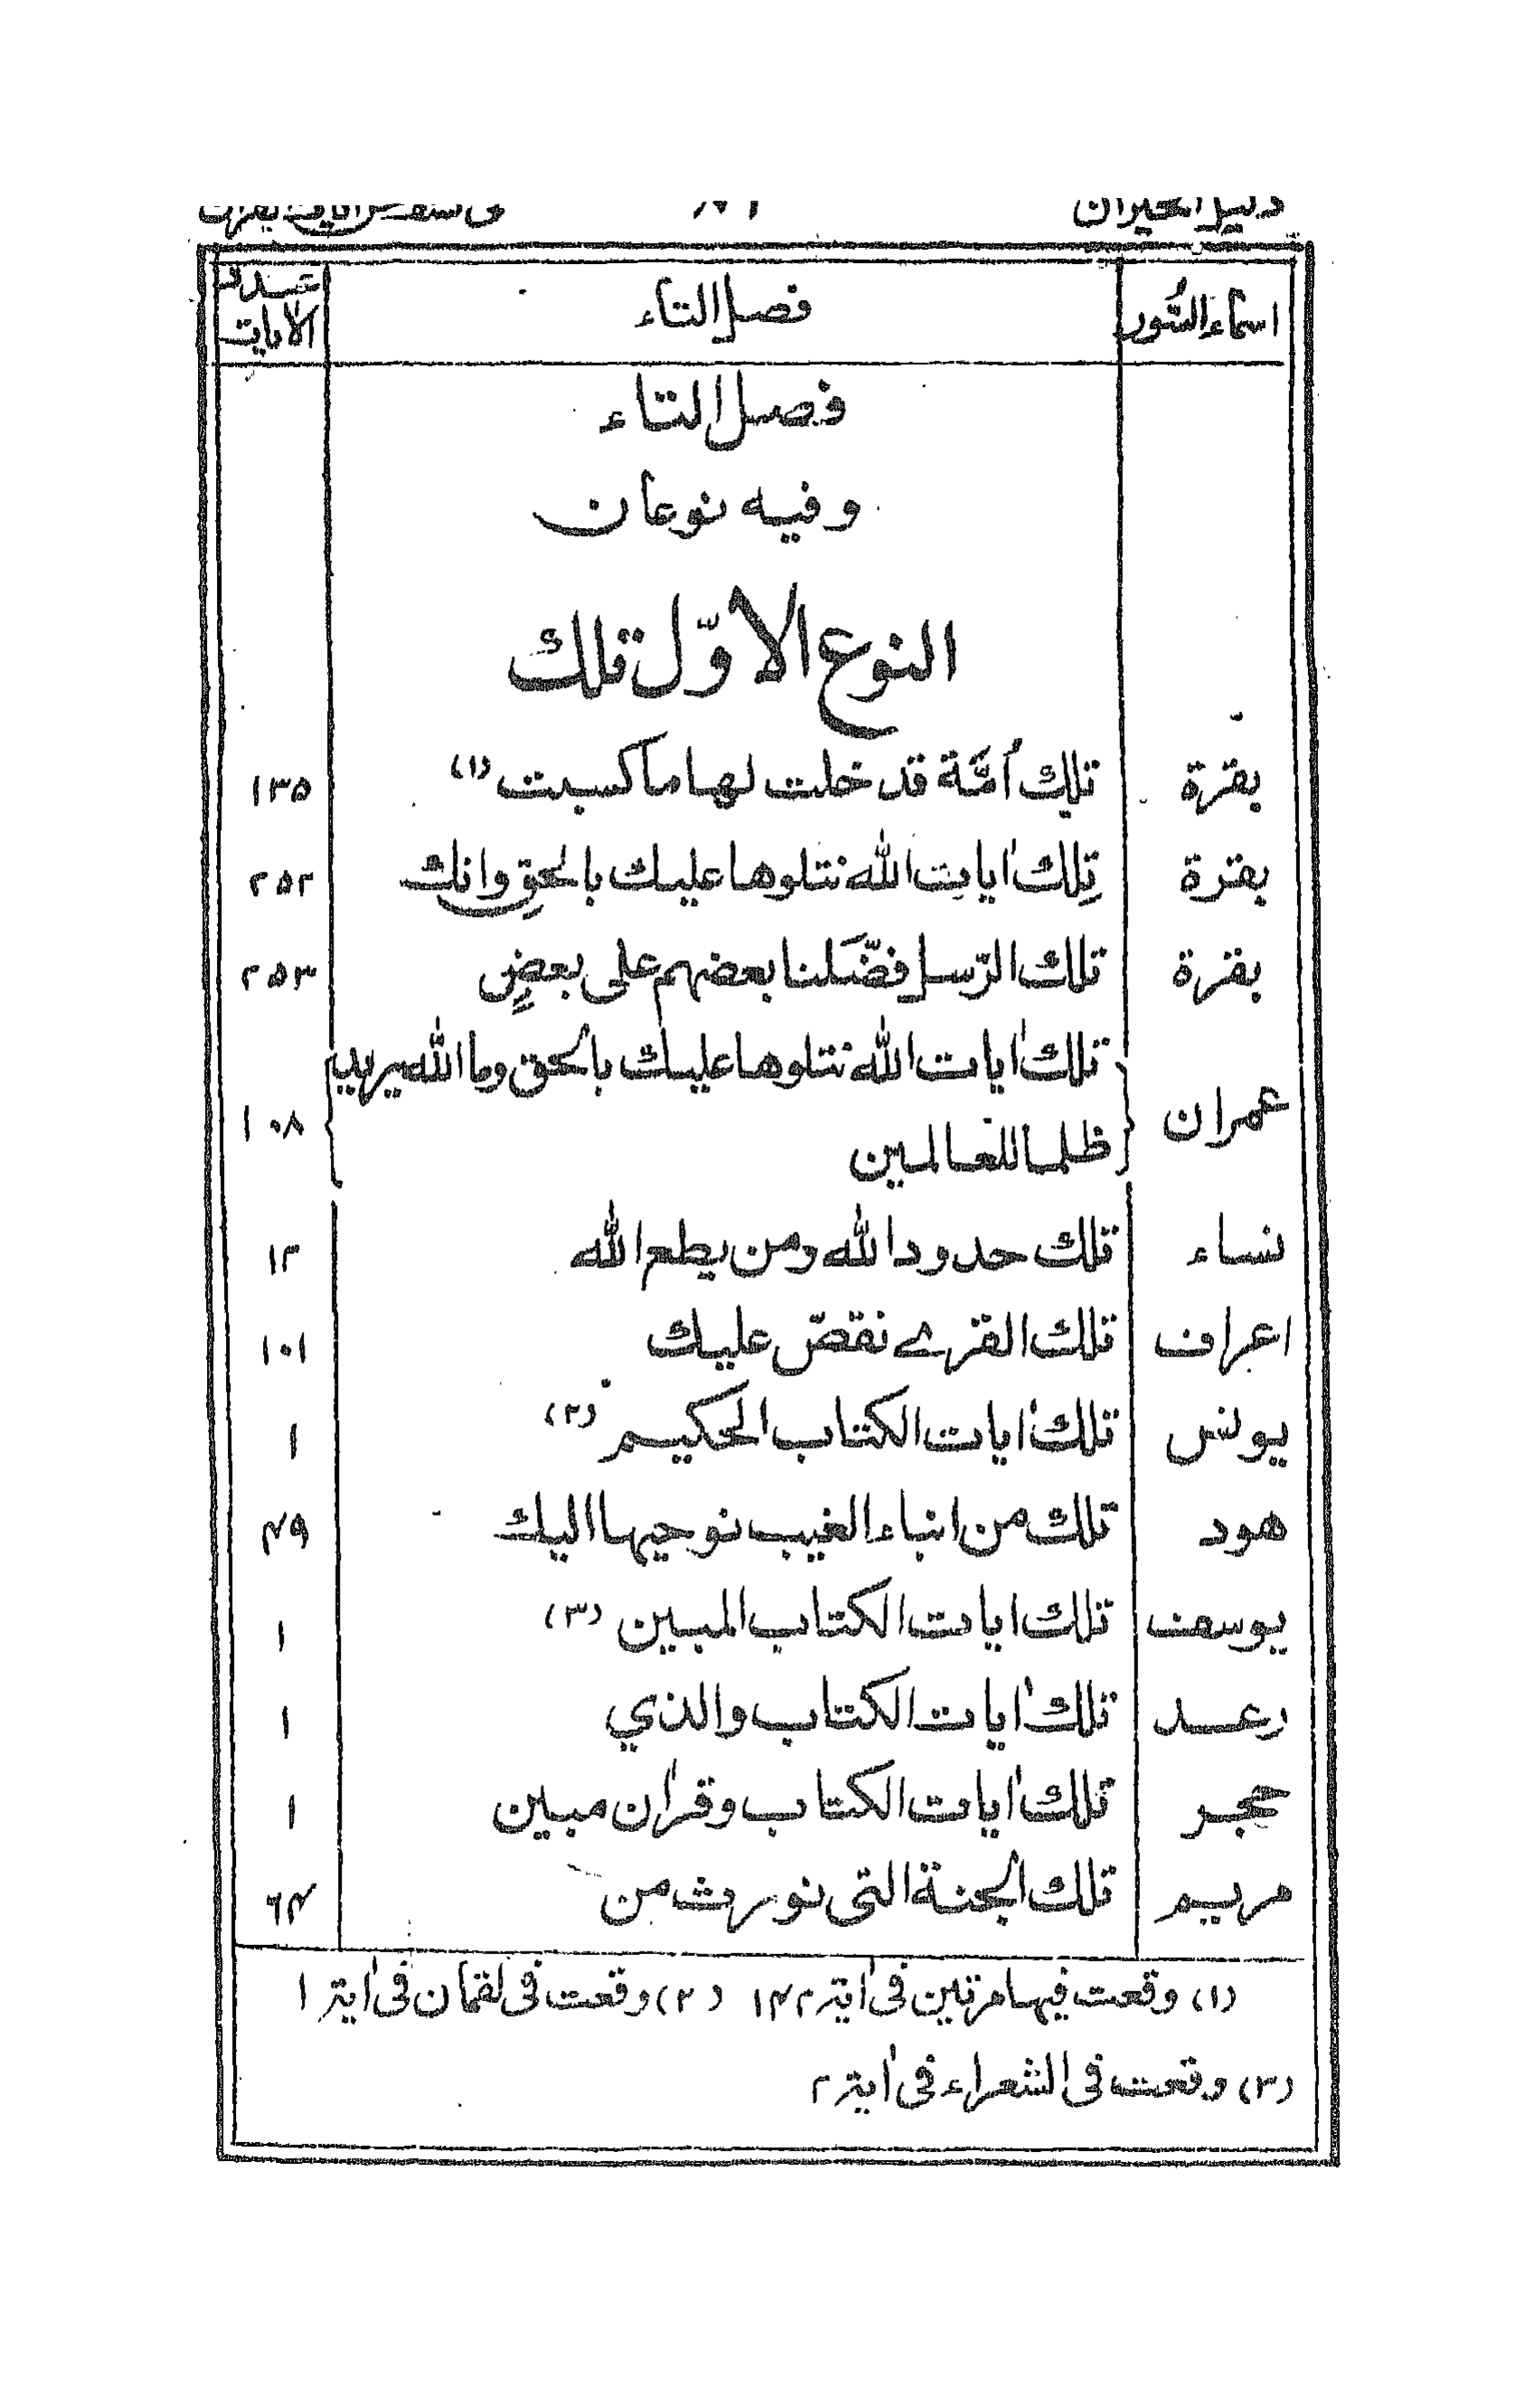 دليل الحيران
اسماء السُّور فصل التاء عدد الايات
فصل التاء
وفيه نوعان
النوع الاوّل تلك
بقرة تلك اُمَّة قد خلت لها ما كسبت (١) ١٣٥
بقرة تِلك اٰيات الله نتلوها عليك بالحقِ وانك ٢٥٢
بقرة تلك الرّسل فضّلنا بعضهم على بعضٍ ٢٥٣
تلك اٰيات الله نتلوها عليك بالحق وما الله يريد
عمران ظلما للعالمين ١٠٨
نساء تلك حدود الله ومن يطع الله ١٢
اعراف تلك القرے نقصّ عليك ١٠١
يونس تلك اٰيات الكتاب الحكيم (٢) ١
هود تلك من انباء الغيب نوحيها اليك ٤٩
يوسف تلك ايات الكتاب المبين (٣) ١
رعد تلك اٰيات الكتاب والذي ١
حجر تلك اٰيات الكتاب وقراٰن مبين ١
مريم تلك الجنة التى نورث من ٦٤
(١) وقعت فيها مرتين فى اٰية ١٤٢ (٢) وقعت فى لقمان فى اٰية ١
(٣) وقعت فى الشعراء فى اٰية ٢